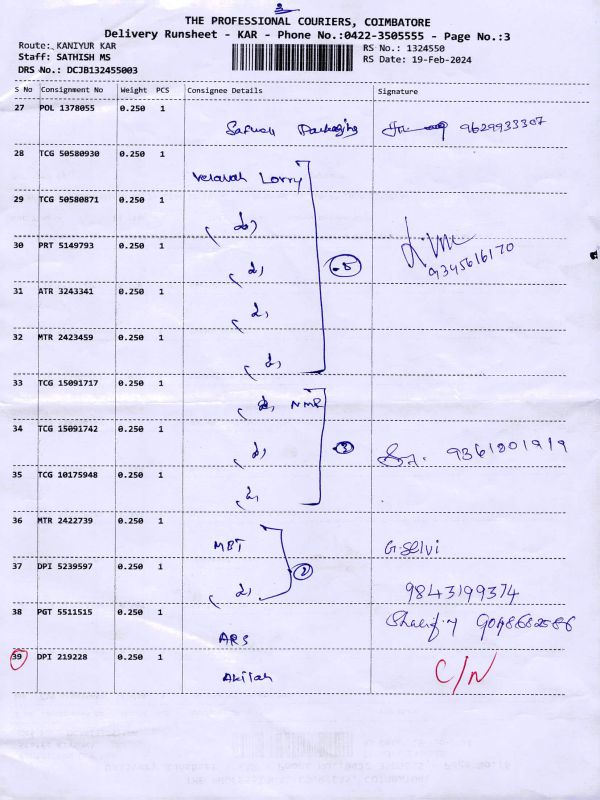 2
THE PROFESSIONAL COURIERS, COIMBATORE
Delivery Runsheet - KAR - Phone No.:0422-3505555 - Page No.:3
Route: KANIYUR KAR
RS No.: 1324550
Staff: SATHISH MS
RS Date: 19-Feb-2024
DRS No.: DCJB132455003
S No Consignment No Weight PCS Consignee Details Signature
27 POL 1378055 0.250 1 Packaging 9629933307
28 TCG 50580930 0.250 1 Velavah Lorry
29 TCG 50580871 0.250 1
30 PRT 5149793 0.250 1 5 9345616170
31 ATR 3243341 0.250 1
32 MTR 2423459 0.250 1
33 TCG 15091717 0.250 1 NMR
34 TCG 15091742 0.250 1 3 9361801919
35 TCG 10175948 0.250 1
36 MTR 2422739 0.250 1 MBT G.Selvi
37 DPI 5239597 0.250 1 2 9843199374
38 PGT 5511515 0.250 1 ARS
39 DPI 219228 0.250 1 Akilah C/N